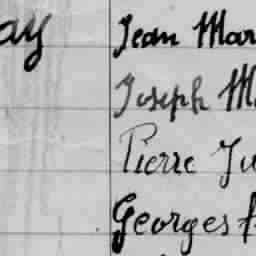 ay Jean Mar
Joseph M
Pierre Ju
Georges